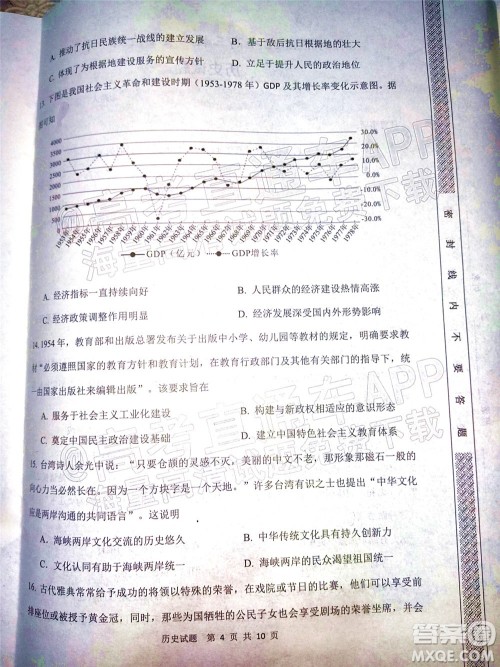 A. 推动了抗日民族统一战线的建立发展 B. 基于敌后抗日根据地的壮大
C. 体现了为根据地建设服务的宣传方针 D. 立足于提升人民的政治地位
13. 下图是我国社会主义革命和建设时期（1953-1978 年）GDP 及其增长率变化示意图。据
图可知
4000 30.0%
3500
3000 20.0%
2500 10.0%
2000 0.0%
1500 -10.0%
1000
500 -20.0%
0 -30.0%
1953年 1954年 1955年 1956年 1957年 1958年 1959年 1960年 1961年 1962年 1963年 1964年 1965年 1966年 1967年 1968年 1969年 1970年 1971年 1972年 1973年 1974年 1975年 1976年 1977年 1978年
GDP（亿元） GDP增长率
A. 经济指标一直持续向好 B. 人民群众的经济建设热情高涨
C. 经济政策调整作用明显 D. 经济发展深受国内外形势影响
14. 1954 年，教育部和出版总署发布关于出版中小学、幼儿园等教材的规定，要求教材
“必须遵照国家的教育方针和教育计划，在教育行政部门及其他有关部门的指导下，统
一由国家出版社来编辑出版”。该要求旨在
A. 服务于社会主义工业化建设 B. 构建与新政权相适应的意识形态
C. 奠定中国民主政治建设基础 D. 建立中国特色社会主义教育体系
15. 台湾诗人余光中说：“只要仓颉的灵感不灭，美丽的中文不老，那形象那磁石一般的
向心力当必然长在。因为一个方块字是一个天地。”许多台湾有识之士也提出“中华文化
应是两岸沟通的共同语言”。这说明
A. 海峡两岸文化交流的历史悠久 B. 中华传统文化具有持久创新力
C. 文化认同有助于海峡两岸统一 D. 海峡两岸的民众渴望祖国统一
16. 古代雅典常常给予成功的将领以特殊的荣誉，在戏院或节日的比赛里，他们可以有前
排座位或被授予黄金冠，同时，那些为国牺牲的公民子女也会享受剧场的荣誉坐席，并会
历史试题 第 4 页 共 10 页
密 封 线 内 不 要 答 题
高考直通车APP
答案圈
MXQE.COM